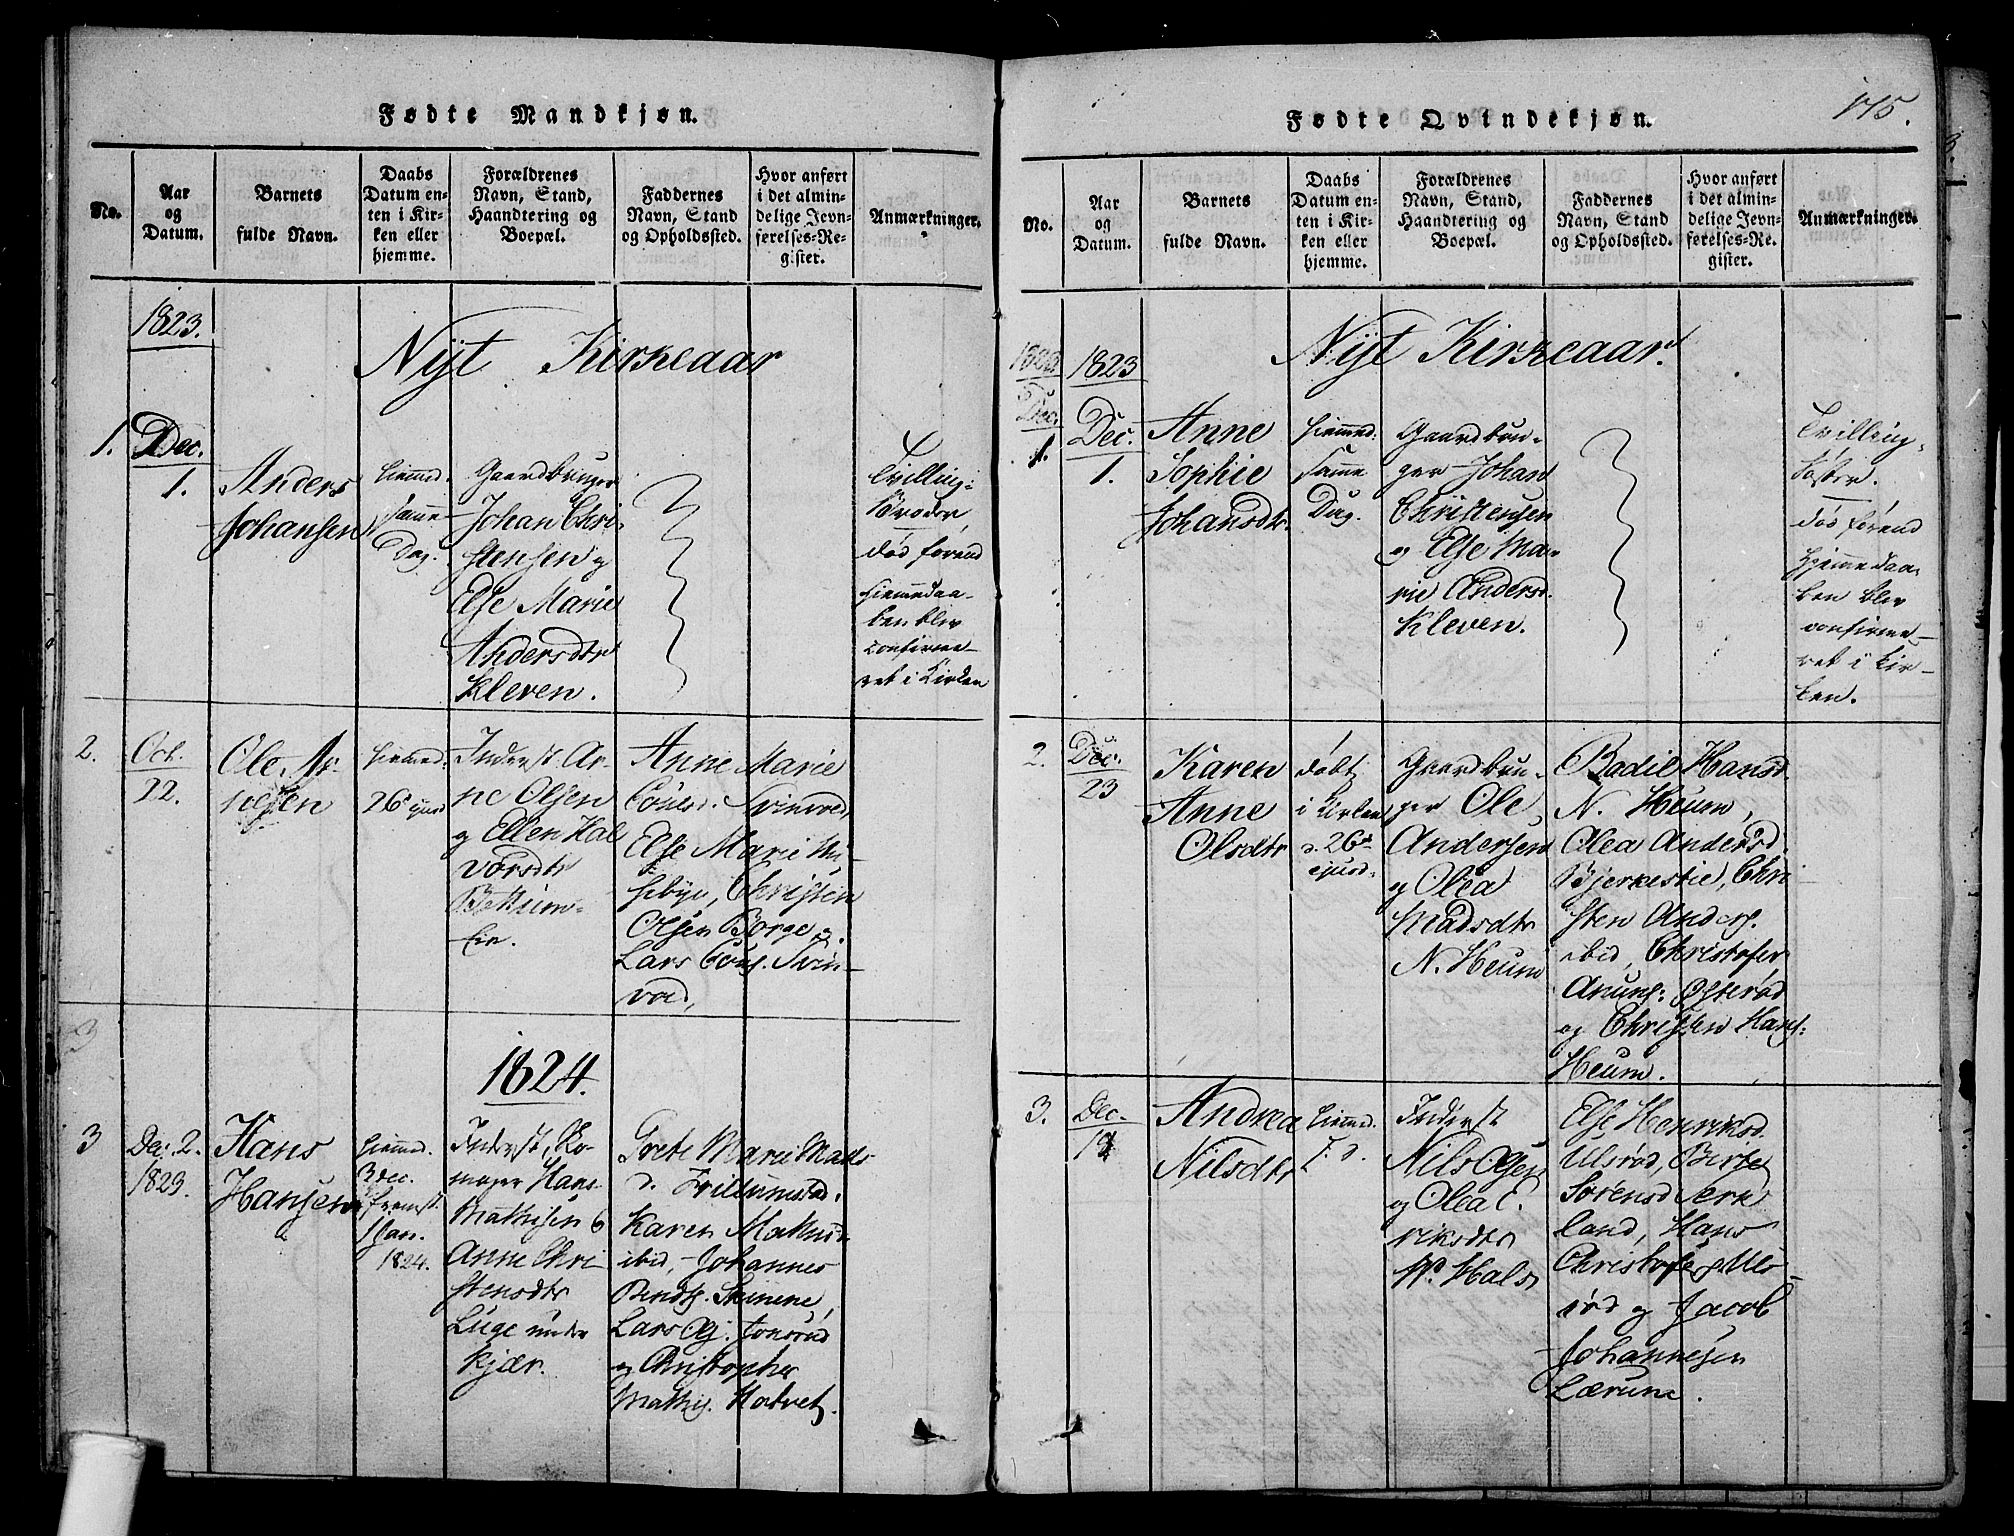 Fødte Mandkjøn.
No.
Aar
og
Datum.
Barnets
fulde Navn.
Daabs
Datum en-
ten i Kir-
ken eller
hjemme.
Forældrenes
Navn, Stand,
Haandtering og
Boepæl.
Faddernes
Navn, Stand
og Opholdssted.
Hvor anført
i det almin-
delige Jevn-
førelses-Re-
gister.
Anmærkninger.
1823.
Nyt Kirkeaar
1.
Dec.
1.
Anders
Johansen
hiemmed.
samme
Dag.
Gaardbruger
Johan Chri-
stensen og
Else Marie
Andersdtr
Kleven.
Tvilling-
Broder
død førend
hiemmedaa-
ben blev
confirme-
ret i Kirken
2.
Oct.
22.
Ole Ar-
nesen
hiemmed.
26 ejusd
Inderst Ar-
ne Olsen
og Ellen Hal
vorsdtr
Anne Marie
Svinvold,
Else Marie
Christen
Olsen Borge og
Lars
Svin-
vold,
3
1824.
3
Dec. 2.
1823.
Hans
Hansen
hiemmed.
3 Dec.
fremst.
1 Jan.
1824.
Inderst, Sko-
mager Hans
Mathisen &
Anne Chri
stensdtr
Luge under
Kjær.
Grete Marie Mads
d.
Karen
ibid, Johannes
Bendts.
Lars
og Christopher
Mathis.
Fødte Qvindekjøn.
175.
No.
Aar
og
Datum.
Barnets
fulde Navn.
Daabs
Datum en-
ten i Kir-
ken eller
hjemme.
Forældrenes
Navn, Stand,
Haandtering og
Boepæl.
Faddernes
Navn, Stand
og Opholdssted.
Hvor anført
i det almin-
delige Jevn-
førelses-Re-
gister.
Anmærkninger.
1823
Nyt Kirkeaar.
Dec.
1.
Dec.
1.
Anne
Sophie
Johansdtr.
hiemmed.
samme
Dag.
Gaardbru-
ger Johan
Christensen
og Else Ma-
rie Andersd.
Kleven.
Tvilling-
Søster.
død førend
Hjemmedaa-
ben blev
confirme-
ret i Kir-
ken.
2.
Dec.
23
Karen
Anne
Olsdtr
døbt
i Kirken
d. 26
ejusd.
Gaardbru-
ger Ole
Andersen
og Olea
Madsdtr
N. Heum
Badil Hansd.
N. Heum,
Olea Andersd.
Bjerkestie, Chri
sten Anders.
ibid, Christofer
Anuns: Østerød
og Christen Hans:
Heum.
3.
Dec.
Andrea
Nilsdtr
hiemmed.
Inderst
Nils Olsen
og Olea E.
riksdtr
Hals
Else Henriksd.
Ulsrød,
Sørensd
land, Hans
rød og Jacob
Johannesen
Lærum.